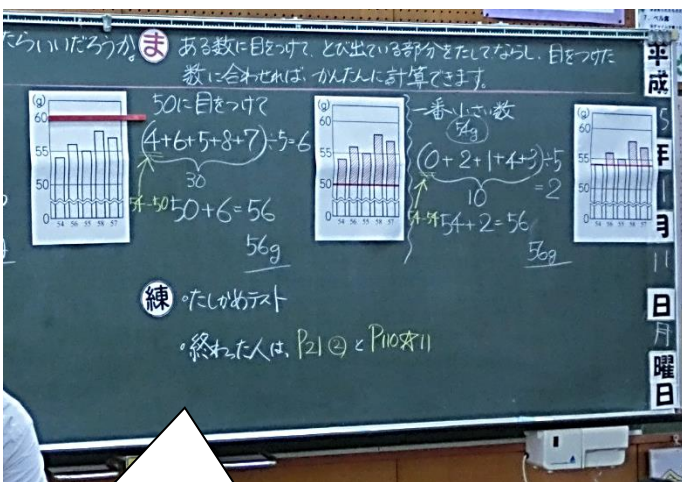 たらいいだろうか。
ま ある数に目をつけて、とび出ている部分をたしてならし、目をつけた
数に合わせれば、かんたんに計算できます。
(g)
60
55
50
0
54 56 55 58 57
50に目をつけて
(4+6+5+8+7)÷5=6
30
54-50
50+6=56
56g
(g)
60
55
50
0
54 56 55 58 57
一番小さい数
54g
(0+2+1+4+3)÷5
10
=2
54-54
54+2=56
56g
(g)
60
55
50
0
54 56 55 58 57
練 ・たしかめテスト
・終わった人は、P21② と P110☆11
平成
5
年
月
11
日
月
曜日